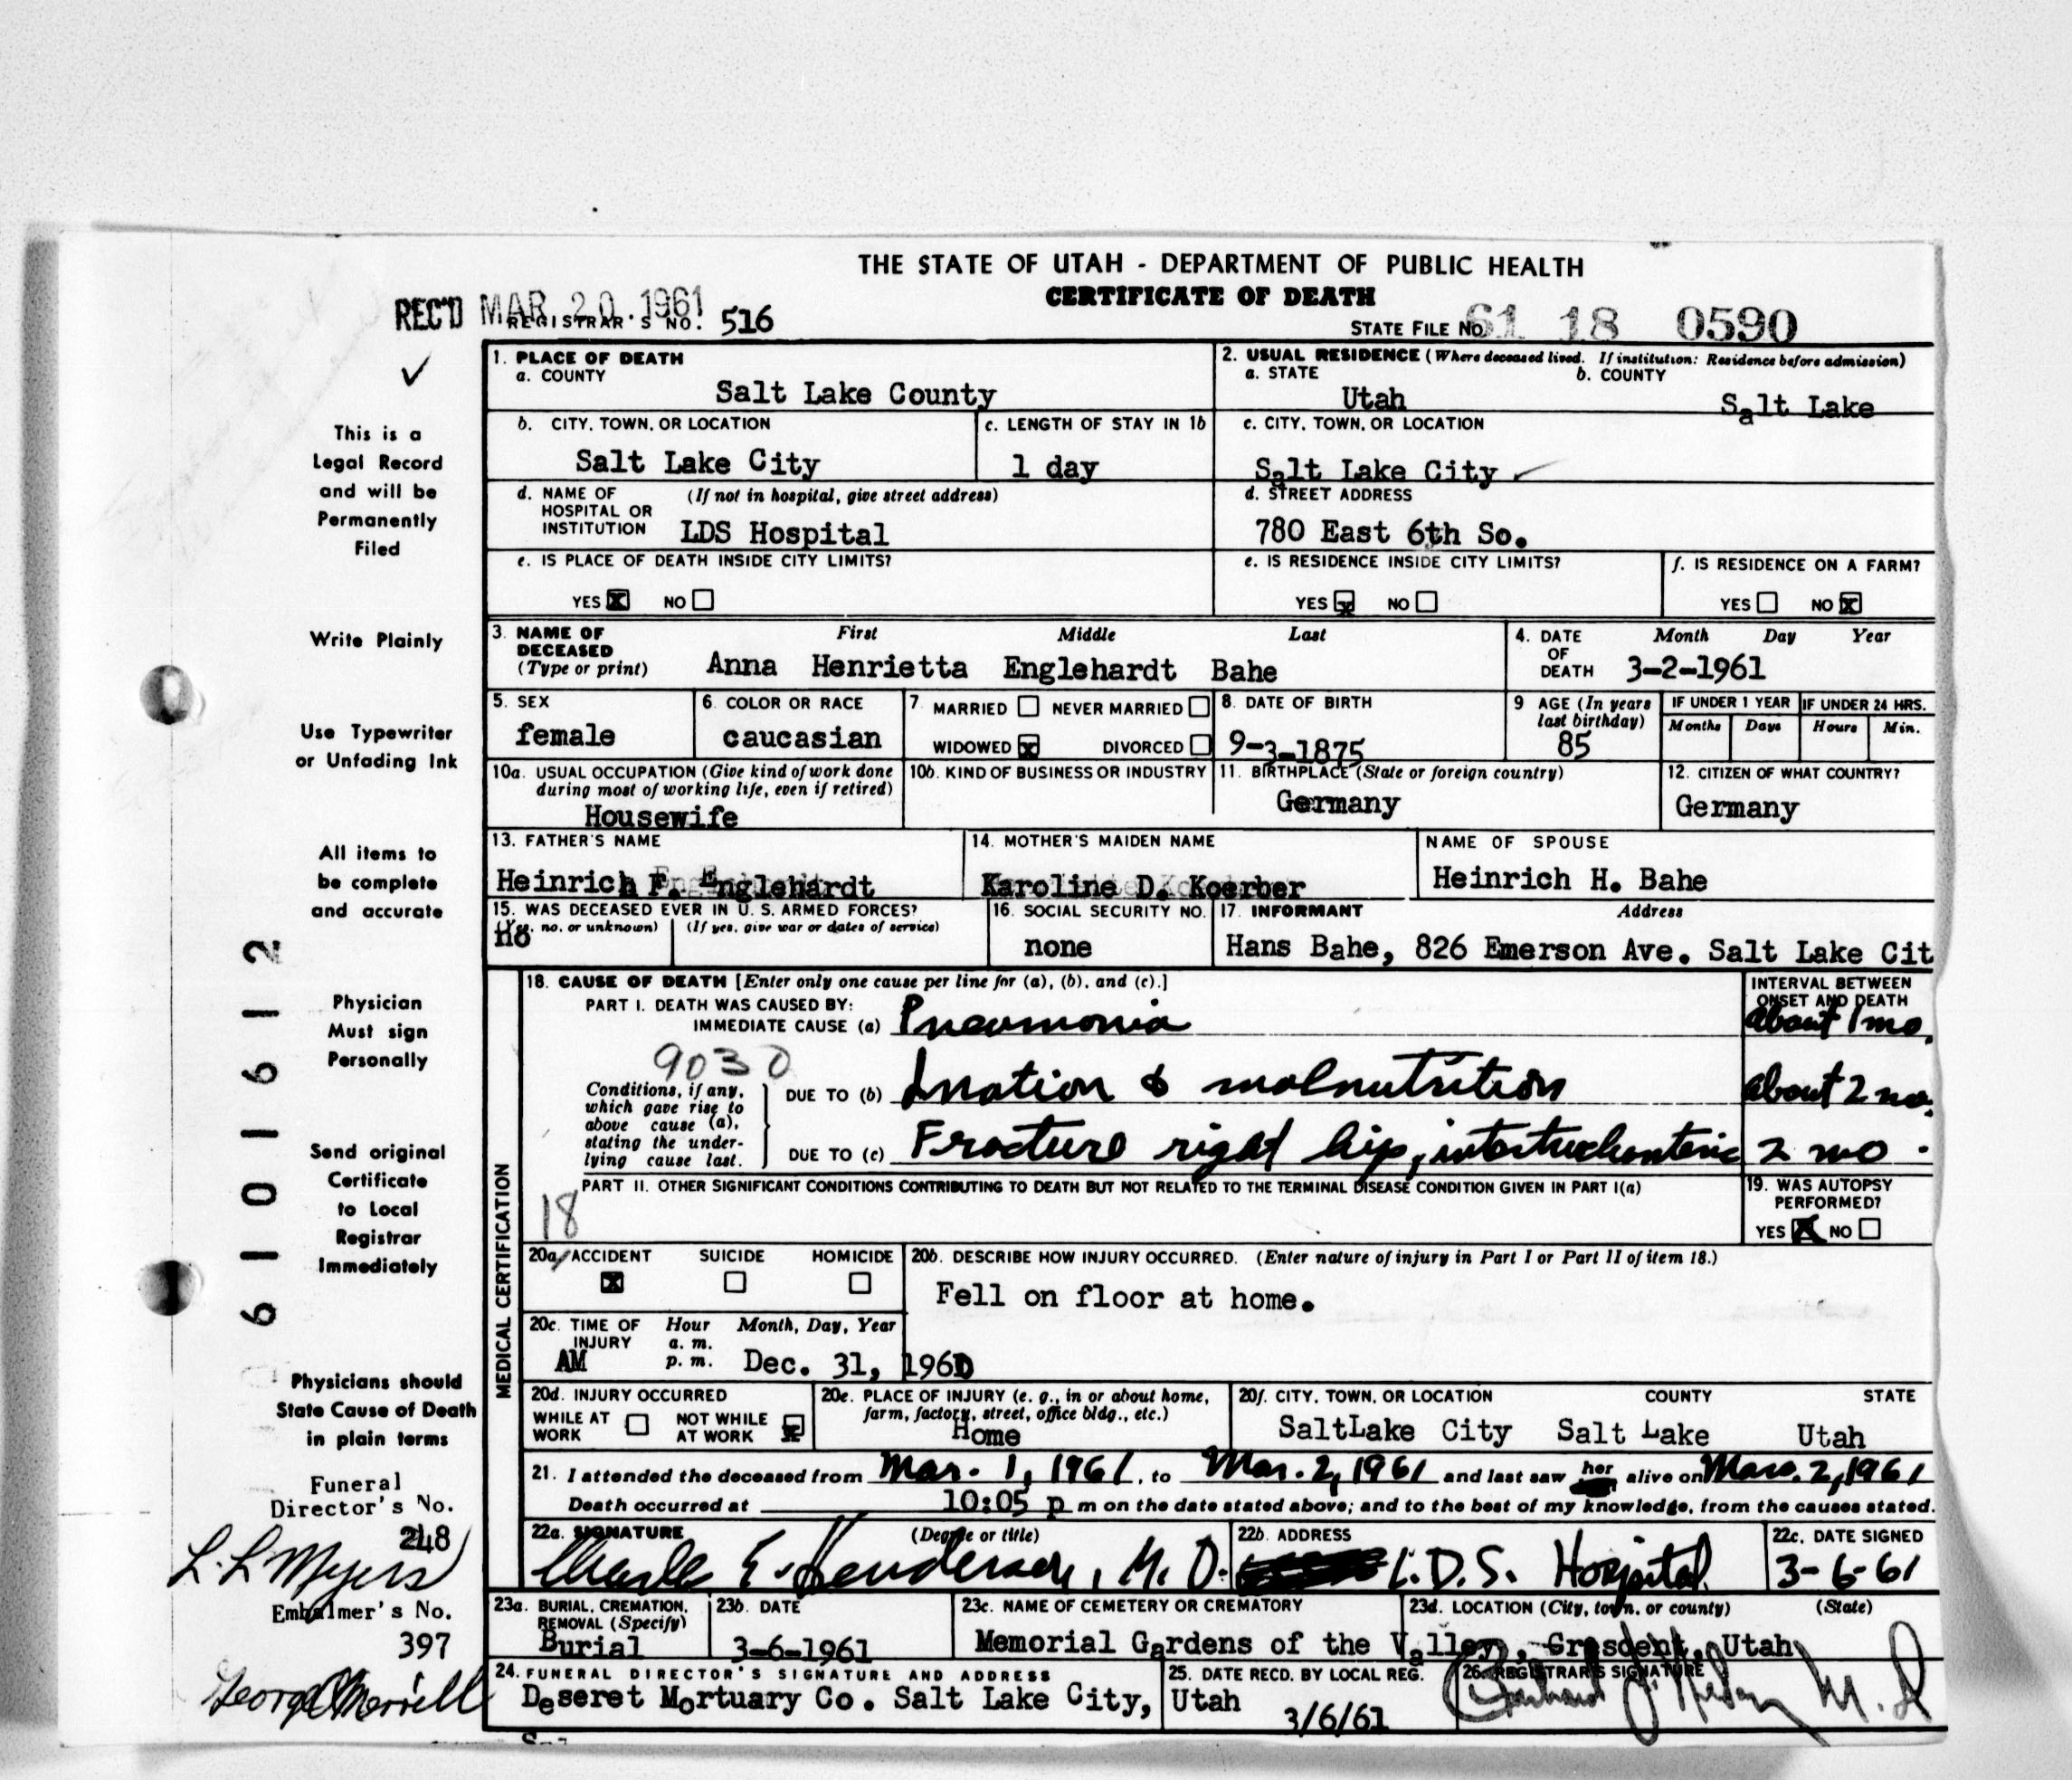 THE STATE OF UTAH - DEPARTMENT OF PUBLIC HEALTH
CERTIFICATE OF DEATH
REC'D MAR 20.1961 REGISTRAR'S NO. 516
STATE FILE No. 61 18 0590
This is a
Legal Record
and will be
Permanently
Filed
Write Plainly
Use Typewriter
or Unfading Ink
All items to
be complete
and accurate
Physician
Must sign
Personally
Send original
Certificate
to Local
Registrar
Immediately
Physicians should
State Cause of Death
in plain terms
Funeral
Director's No.
248
L. L. Myers
Embalmer's No.
397
George Merrill
6101612
1. PLACE OF DEATH
a. COUNTY
Salt Lake County
b. CITY, TOWN, OR LOCATION
Salt Lake City
c. LENGTH OF STAY IN 1b
1 day
d. NAME OF HOSPITAL OR INSTITUTION (If not in hospital, give street address)
LDS Hospital
e. IS PLACE OF DEATH INSIDE CITY LIMITS?
YES X NO
2. USUAL RESIDENCE (Where deceased lived. If institution: Residence before admission)
a. STATE
Utah
b. COUNTY
Salt Lake
c. CITY, TOWN, OR LOCATION
Salt Lake City
d. STREET ADDRESS
780 East 6th So.
e. IS RESIDENCE INSIDE CITY LIMITS?
YES X NO
f. IS RESIDENCE ON A FARM?
YES NO X
3. NAME OF DECEASED (Type or print)
First Middle Last
Anna Henrietta Englehardt Bahe
4. DATE OF DEATH
Month Day Year
3-2-1961
5. SEX
female
6. COLOR OR RACE
caucasian
7. MARRIED NEVER MARRIED
WIDOWED X DIVORCED
8. DATE OF BIRTH
9-3-1875
9 AGE (In years last birthday)
85
IF UNDER 1 YEAR
Months Days
IF UNDER 24 HRS.
Hours Min.
10a. USUAL OCCUPATION (Give kind of work done during most of working life, even if retired)
Housewife
10b. KIND OF BUSINESS OR INDUSTRY
11. BIRTHPLACE (State or foreign country)
Germany
12. CITIZEN OF WHAT COUNTRY?
Germany
13. FATHER'S NAME
Heinrich F. Englehardt
14. MOTHER'S MAIDEN NAME
Karoline D. Koerber
NAME OF SPOUSE
Heinrich H. Bahe
15. WAS DECEASED EVER IN U. S. ARMED FORCES?
(Yes, no, or unknown) (If yes, give war or dates of service)
no
16. SOCIAL SECURITY NO.
none
17. INFORMANT Address
Hans Bahe, 826 Emerson Ave. Salt Lake Cit
MEDICAL CERTIFICATION
18. CAUSE OF DEATH [Enter only one cause per line for (a), (b), and (c).]
INTERVAL BETWEEN ONSET AND DEATH
PART I. DEATH WAS CAUSED BY:
IMMEDIATE CAUSE (a) Pneumonia about 1 mo.
9030
Conditions, if any, which gave rise to above cause (a), stating the underlying cause last.
DUE TO (b) Ination & malnutrition about 2 mo.
DUE TO (c) Fracture right hip, intertrochanteric 2 mo.
PART II. OTHER SIGNIFICANT CONDITIONS CONTRIBUTING TO DEATH BUT NOT RELATED TO THE TERMINAL DISEASE CONDITION GIVEN IN PART I(a)
18
19. WAS AUTOPSY PERFORMED?
YES X NO
20a. ACCIDENT SUICIDE HOMICIDE
X
20b. DESCRIBE HOW INJURY OCCURRED. (Enter nature of injury in Part I or Part II of item 18.)
Fell on floor at home.
20c. TIME OF INJURY Hour a. m. p. m. Month, Day, Year
AM Dec. 31, 1960
20d. INJURY OCCURRED
WHILE AT WORK NOT WHILE AT WORK X
20e. PLACE OF INJURY (e. g., in or about home, farm, factory, street, office bldg., etc.)
Home
20f. CITY, TOWN, OR LOCATION COUNTY STATE
SaltLake City Salt Lake Utah
21. I attended the deceased from Mar. 1, 1961, to Mar. 2, 1961 and last saw her alive on Mar. 2, 1961
Death occurred at 10:05 p m on the date stated above; and to the best of my knowledge, from the causes stated.
22a. SIGNATURE (Degree or title)
Charles E. Henderson, M. D.
22b. ADDRESS
L.D.S. Hospital
22c. DATE SIGNED
3-6-61
23a. BURIAL, CREMATION, REMOVAL (Specify)
Burial
23b. DATE
3-6-1961
23c. NAME OF CEMETERY OR CREMATORY
Memorial Gardens of the Valley,
23d. LOCATION (City, town, or county) (State)
Cresdent, Utah
24. FUNERAL DIRECTOR'S SIGNATURE AND ADDRESS
Deseret Mortuary Co. Salt Lake City, Utah
25. DATE RECD. BY LOCAL REG.
3/6/61
26. REGISTRAR'S SIGNATURE
M. D